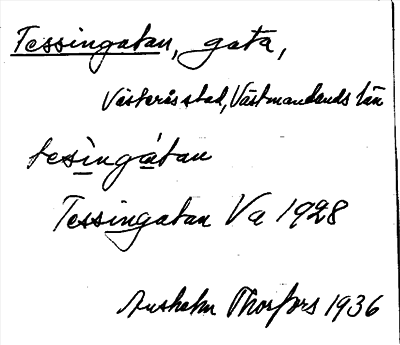 Tessingatan, gata,
Västerås stad, Västmanlands län
tesìngátan
Tessingatan Va 1928
Thorfors 1936